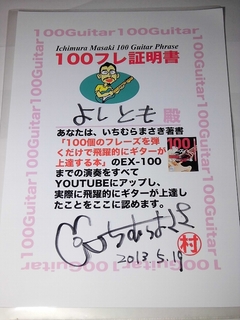 100Guitar 100Guitar 100Guitar
Ichimura Masaki 100 Guitar Phrase
100フレ証明書
よしとも 殿
あなたは、いちむらまさき著書
「100個のフレーズを弾
くだけで飛躍的にギターが
上達する本」のEX-100
までの演奏をすべて
YOUTUBEにアップし、
実際に飛躍的にギターが上達し
たことをここに認めます。
いちむらまさき
村
2013.5.19
100Guitar 100Guitar 100Guitar